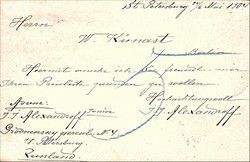 St. Petersburg 7/5 Mai 1904
Herrn
W. Künast
Berlin
Hiermit ersuche ich Sie freundl. mir
Ihren Preisliste zusenden zu wollen
Hochachtungsvoll
J. J. Alexandroff
Adresse:
J. J. Alexandroff Junior
Grodnensky pereulc N. 4
St. Petersburg
Russland